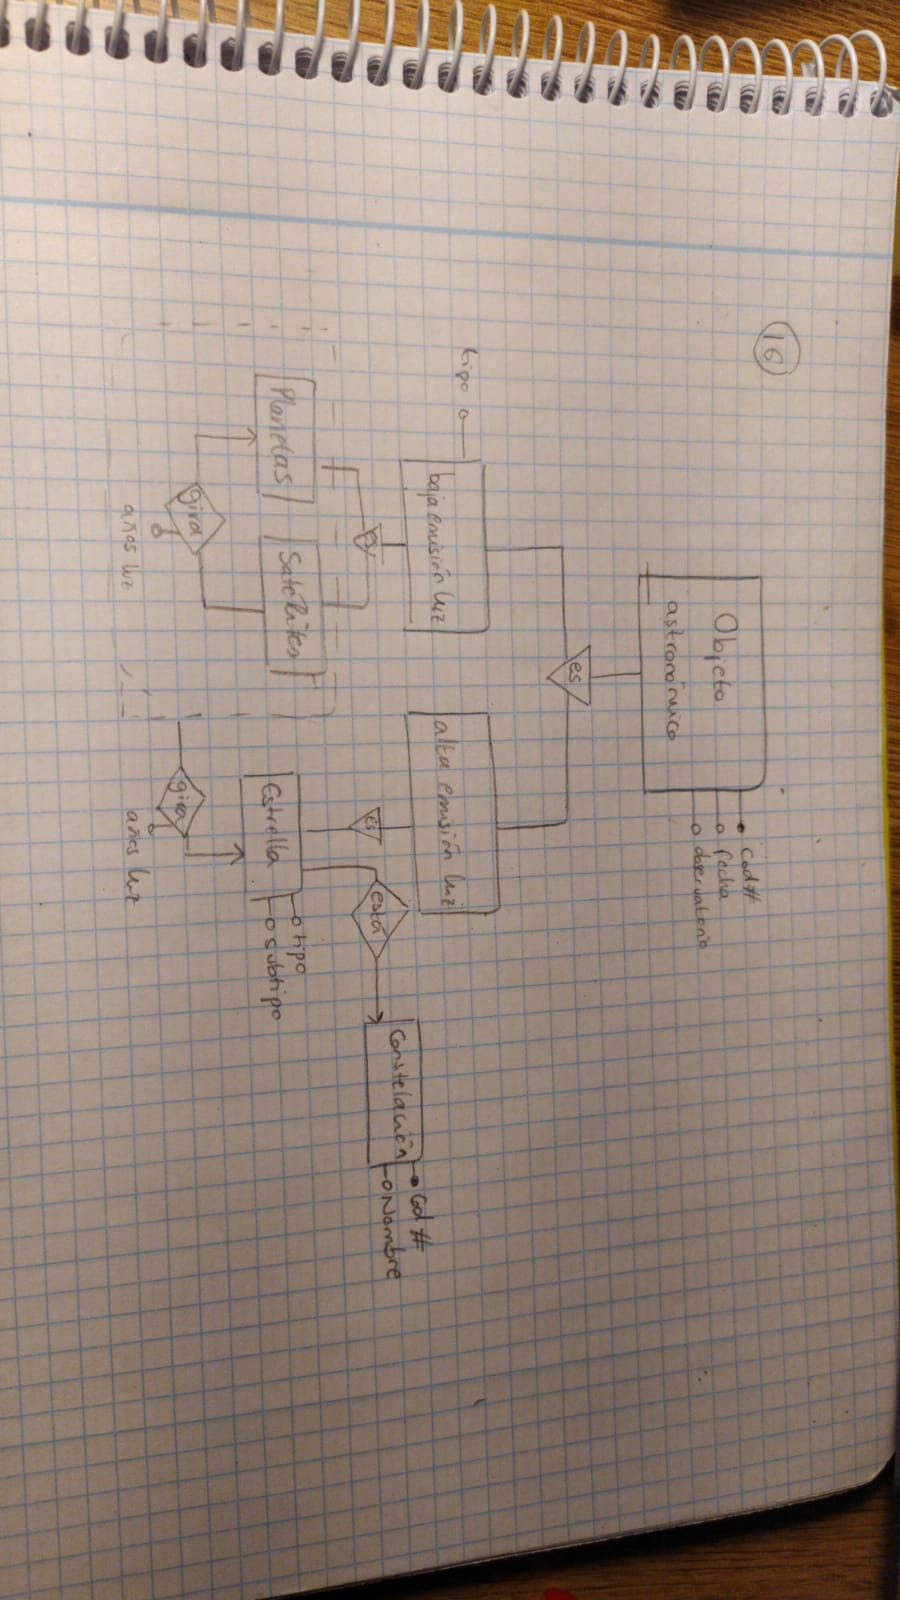 16
Objeto
astronómico
Cod#
fecha
observatorio
es
tipo
baja emisión luz
alta emisión luz
es
es
está
Constelación
Cod #
Nombre
Planetas
Satélites
Estrella
tipo
subtipo
gira
años luz
gira
años luz